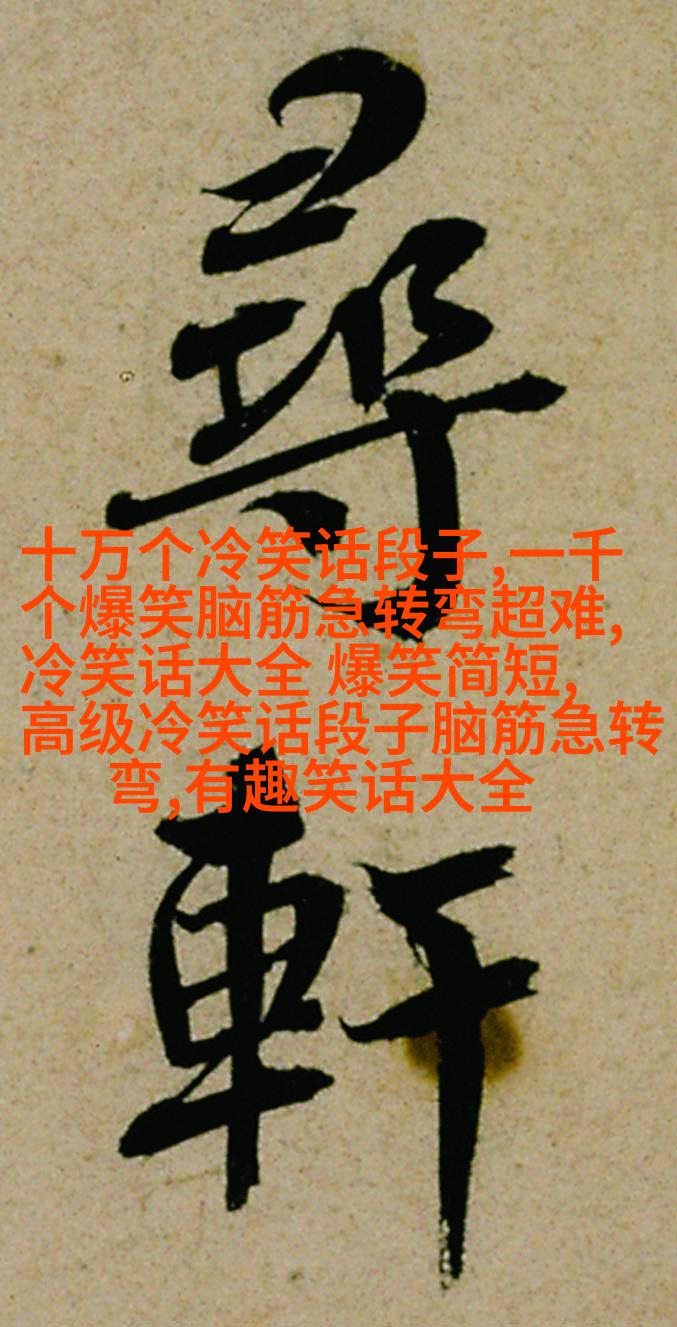 尋
軒
十万个冷笑话段子,一千
个爆笑脑筋急转弯超难,
冷笑话大全 爆笑简短,
高级冷笑话段子脑筋急转
弯,有趣笑话大全